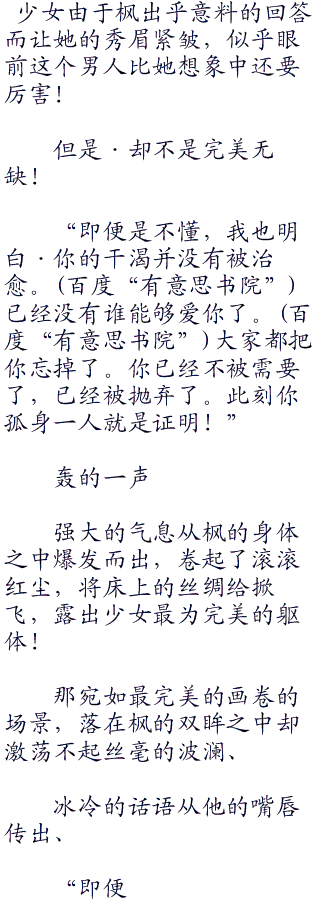 少女由于枫出乎意料的回答
而让她的秀眉紧皱，似乎眼
前这个男人比她想象中还要
厉害！
但是·却不是完美无
缺！
“即便是不懂，我也明
白·你的干渴并没有被治
愈。(百度“有意思书院”)
已经没有谁能够爱你了。(百
度“有意思书院”)大家都把
你忘掉了。你已经不被需要
了，已经被抛弃了。此刻你
孤身一人就是证明！”
轰的一声
强大的气息从枫的身体
之中爆发而出，卷起了滚滚
红尘，将床上的丝绸给掀
飞，露出少女最为完美的躯
体！
那宛如最完美的画卷的
场景，落在枫的双眸之中却
激荡不起丝毫的波澜、
冰冷的话语从他的嘴唇
传出、
“即便